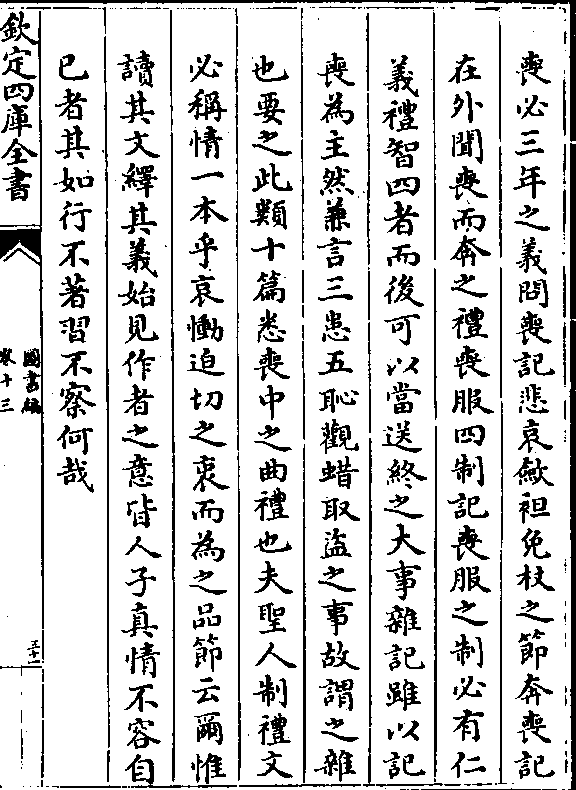 喪必三年之義問喪記悲哀斂袒免杖之節奔喪記
在外聞喪而奔之禮喪服四制記喪服之制必有仁
義禮智四者而後可以當送終之大事雜記雖以記
喪為主然兼言三患五恥觀蜡取盜之事故謂之雜
也要之此類十篇悉喪中之曲禮也夫聖人制禮文
必稱情一本乎哀慟迫切之衷而為之品節云爾惟
讀其文繹其義始見作者之意皆人子真情不容自
已者其如行不著習不察何哉
欽定四庫全書
圖書編
卷十三